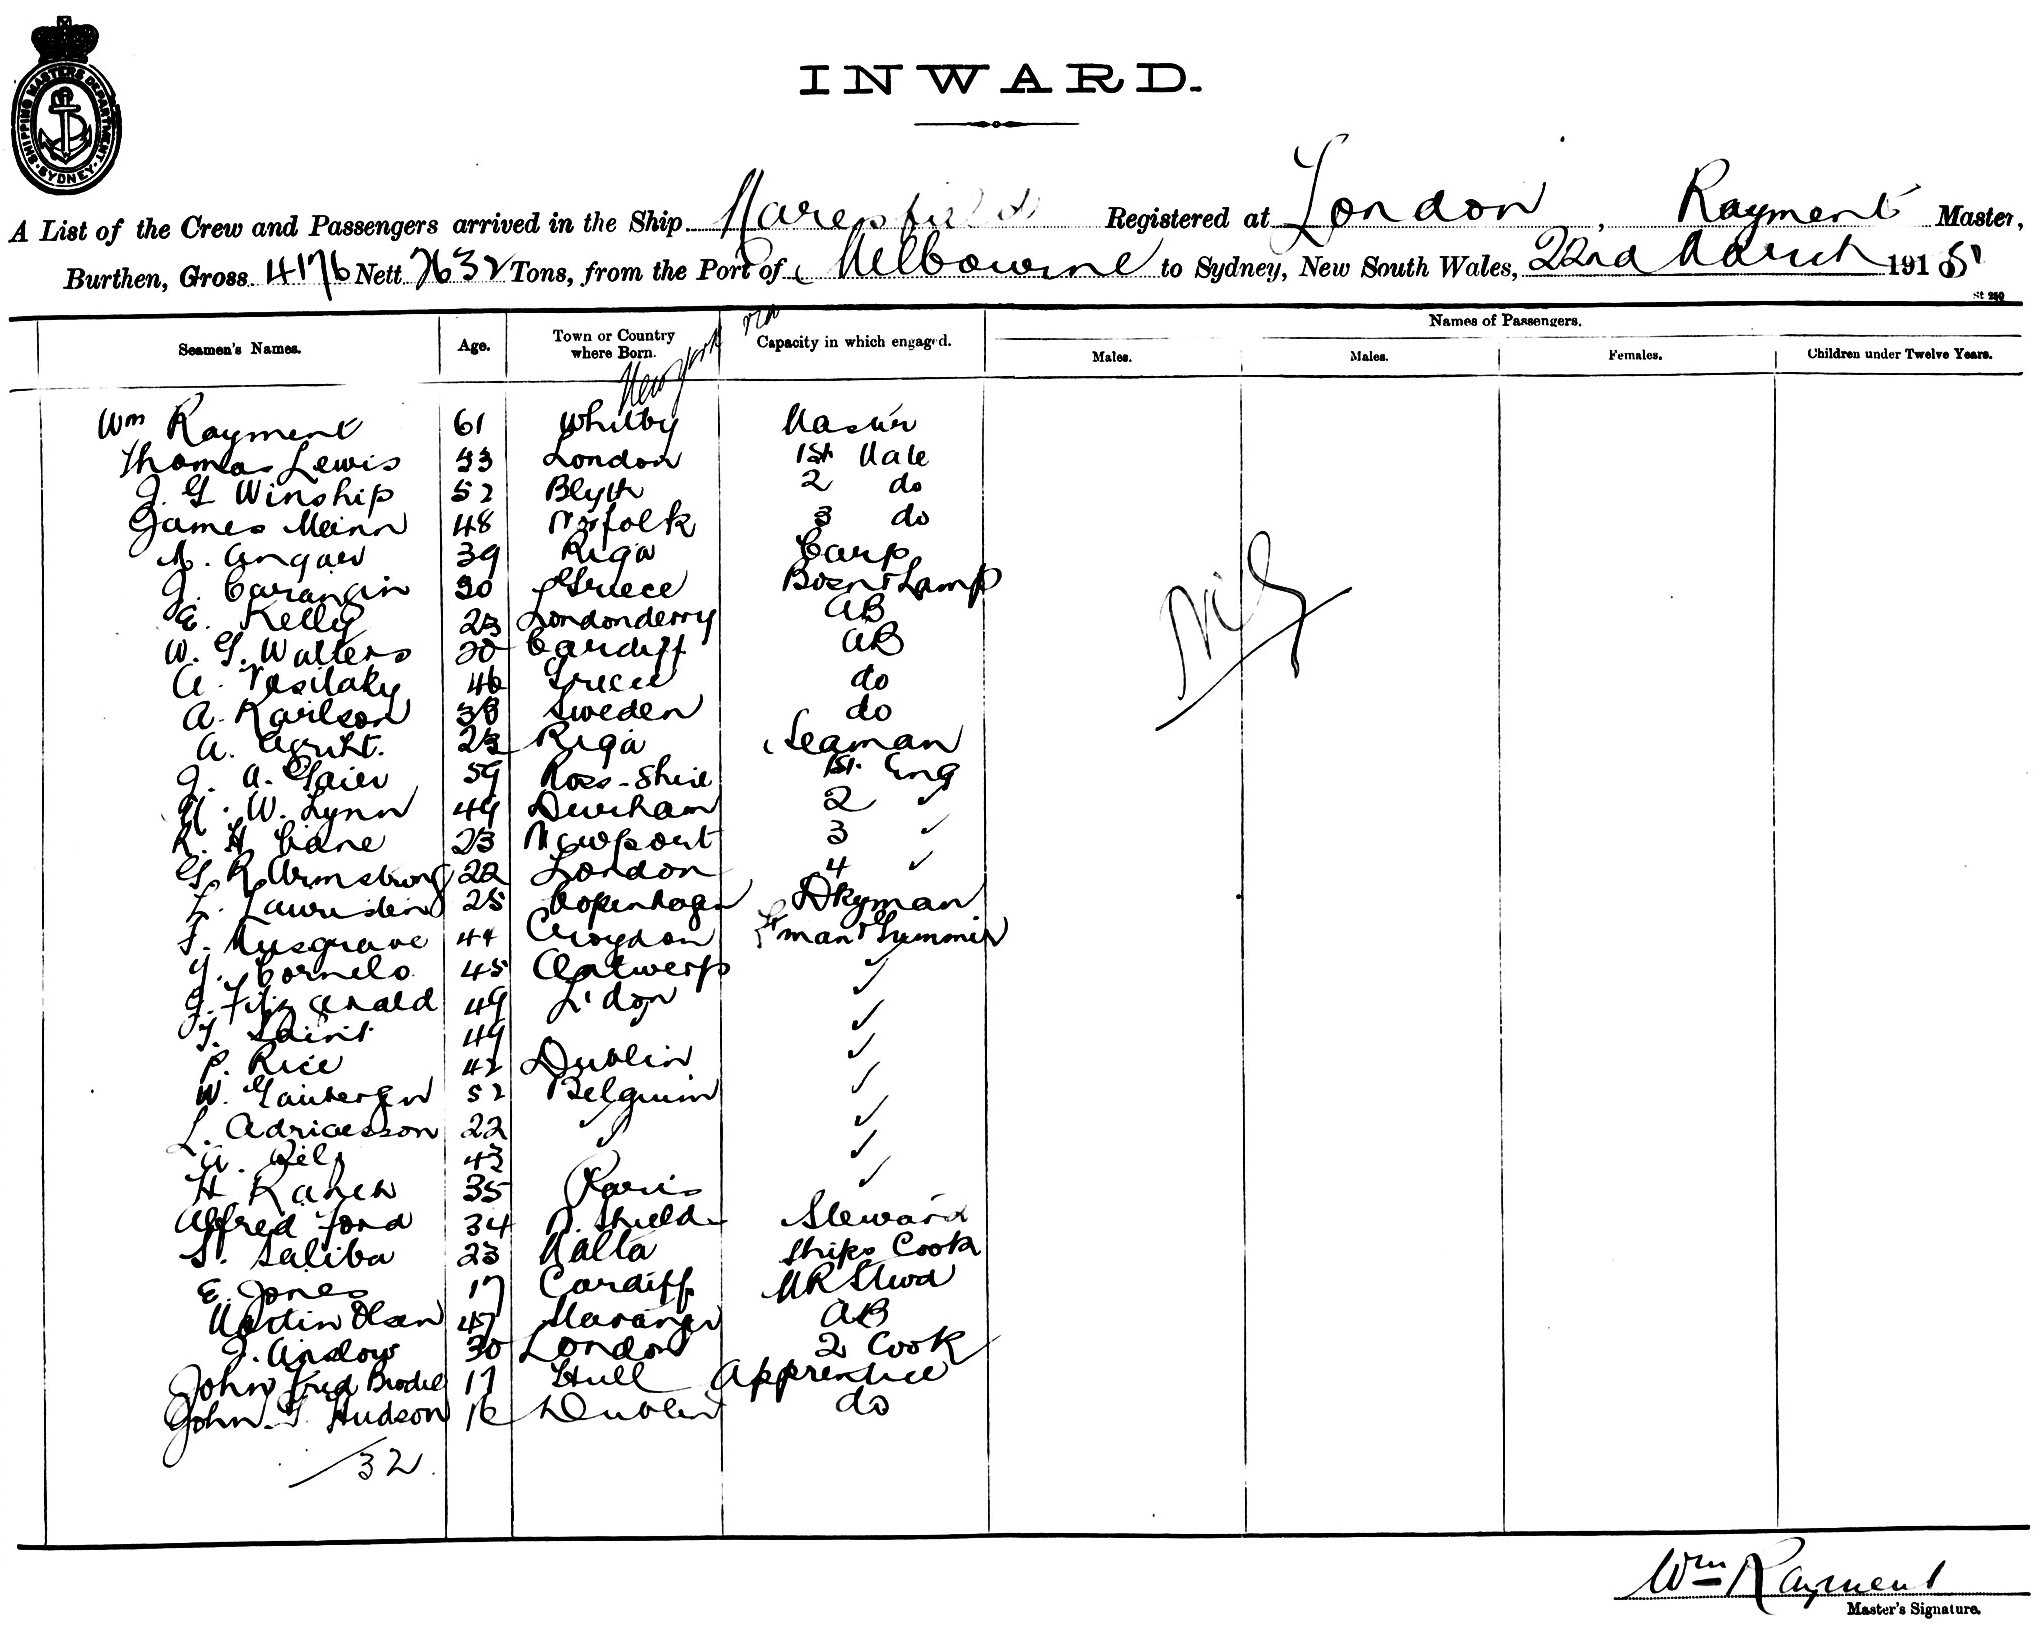 SHIPPING MASTERS DEPARTMENT. SYDNEY.
INWARD.
A List of the Crew and Passengers arrived in the Ship Maresfield Registered at London, Rayment Master,
Burthen, Gross 4176 Nett 2632 Tons, from the Port of Melbourne to Sydney, New South Wales, 22nd March 1915
St 250
via New York
Seamen's Names. Age. Town or Country where Born. Capacity in which engaged. Names of Passengers.
Males. Males. Females. Children under Twelve Years.
Wm Rayment 61 Whitby Master
Thomas Lewis 33 London 1st Mate
J. G Winship 52 Blyth 2 do
James Mainn 48 Norfolk 3 do
A. Angaw 39 Riga Carp
J. Carangin 30 Greece Bosn & Lamp
E. Kelly 23 Londonderry AB
W. G. Walters 20 Cardiff AB
A. Vasilaky 46 Greece do
A. Karlson 38 Sweden do
A. 23 Riga Seaman
J. A. 59 Ross-Shire 1st Eng
W. Lynn 49 Durham 2 ✓
R. H Cane 23 Newport 3 ✓
G R Armstrong 22 London 4 ✓
L. 25 Copenhagen Dkyman
F. Musgrave 44 Croydon Fman & Trimmer
J. Cornelo 45 Antwerp ✓
J. Fitzgerald 49 ✓
T. Saint 49 ✓
P. Rice 42 Dublin ✓
W. 52 Belguim ✓
L. Adriaesson 22 ✓ ✓
43 ✓ ✓
H 35 Paris ✓
Alfred Ford 34 N. Shields Steward
S. Saliba 23 Malta Ships Cook
E. Jones 17 Cardiff MR Stwd
Martin Olsen 47 AB
J. Andow 30 London 2 Cook
John Fred Brodie 17 Hull Apprentice
John T Hudson 16 Dublin do
32
Nil
Wm Rayment
Master's Signature.